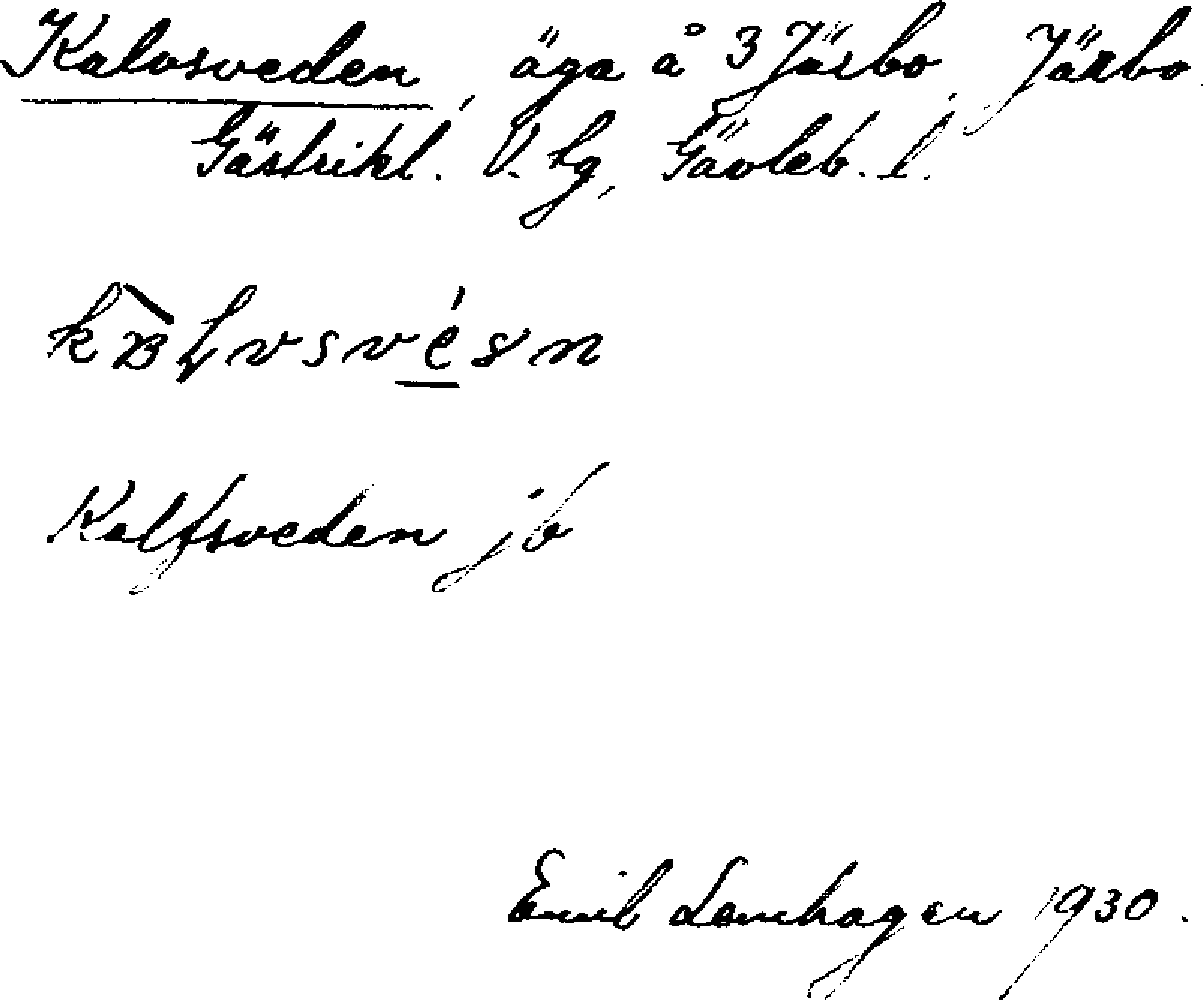 Kalvsveden, äga å 3 Järbo, Järbo
Gästrikl. V. tg, Gävleb. l.
Kalfsveden jb
Emil Lamhagen 1930.